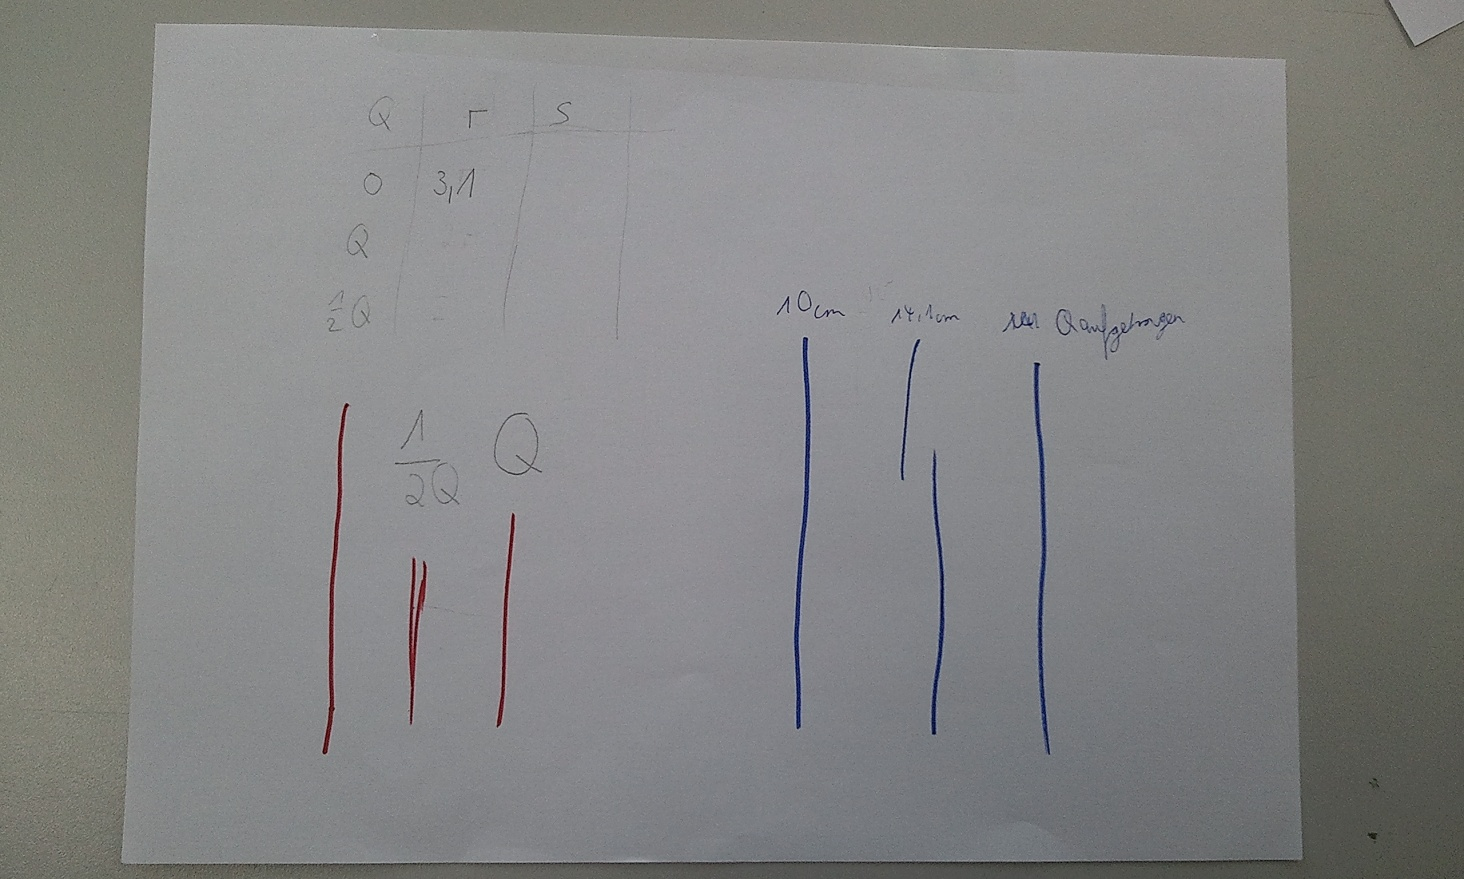 Q r S
0 3,1
Q
1/2 Q
1/2Q Q
10cm 14,1cm Q aufgetragen